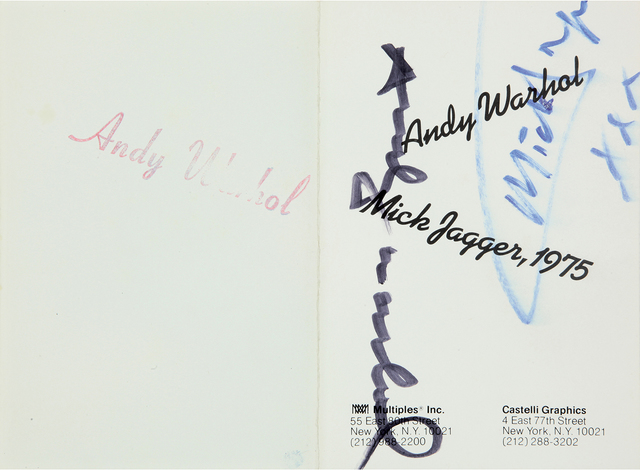 Andy Warhol
Andy Warhol
Mick Jagger, 1975
Mick
Multiples® Inc.
55 East 80th Street
New York, N.Y. 10021
(212) 988-2200
Castelli Graphics
4 East 77th Street
New York, N.Y. 10021
(212) 288-3202